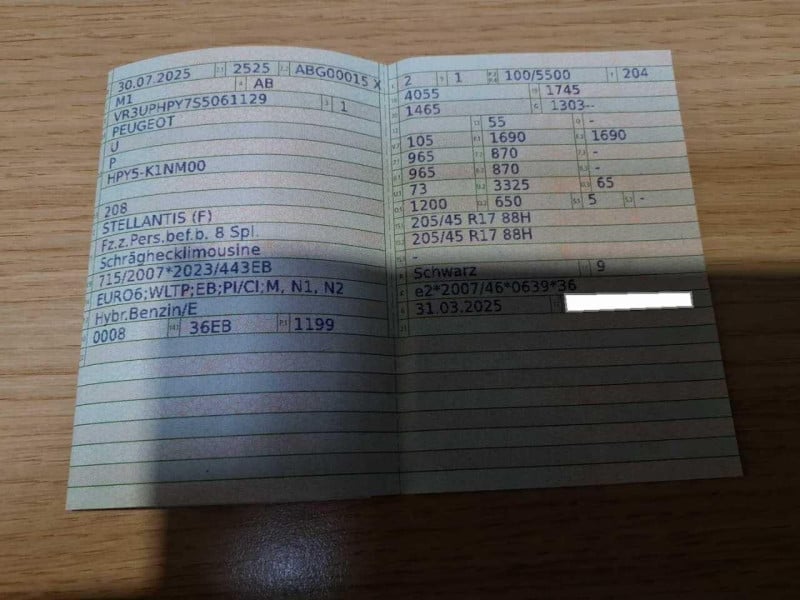 30.07.2025 2525 ABG00015 X
M1 AB
VR3UPHPY7S5061129 1
PEUGEOT
U
P
HPY5-K1NM00
208
STELLANTIS (F)
Fz.z.Pers.bef.b. 8 Spl.
Schräghecklimousine
715/2007*2023/443EB
EURO6;WLTP;EB;PI/CI;M, N1, N2
Hybr.Benzin/E
0008 36EB 1199
2 1 100/5500 204
4055 1745
1465 1303--
55 -
105 1690 1690
965 870 -
965 870 -
73 3325 65
1200 650 5 -
205/45 R17 88H
205/45 R17 88H
-
Schwarz 9
e2*2007/46*0639*36
31.03.2025